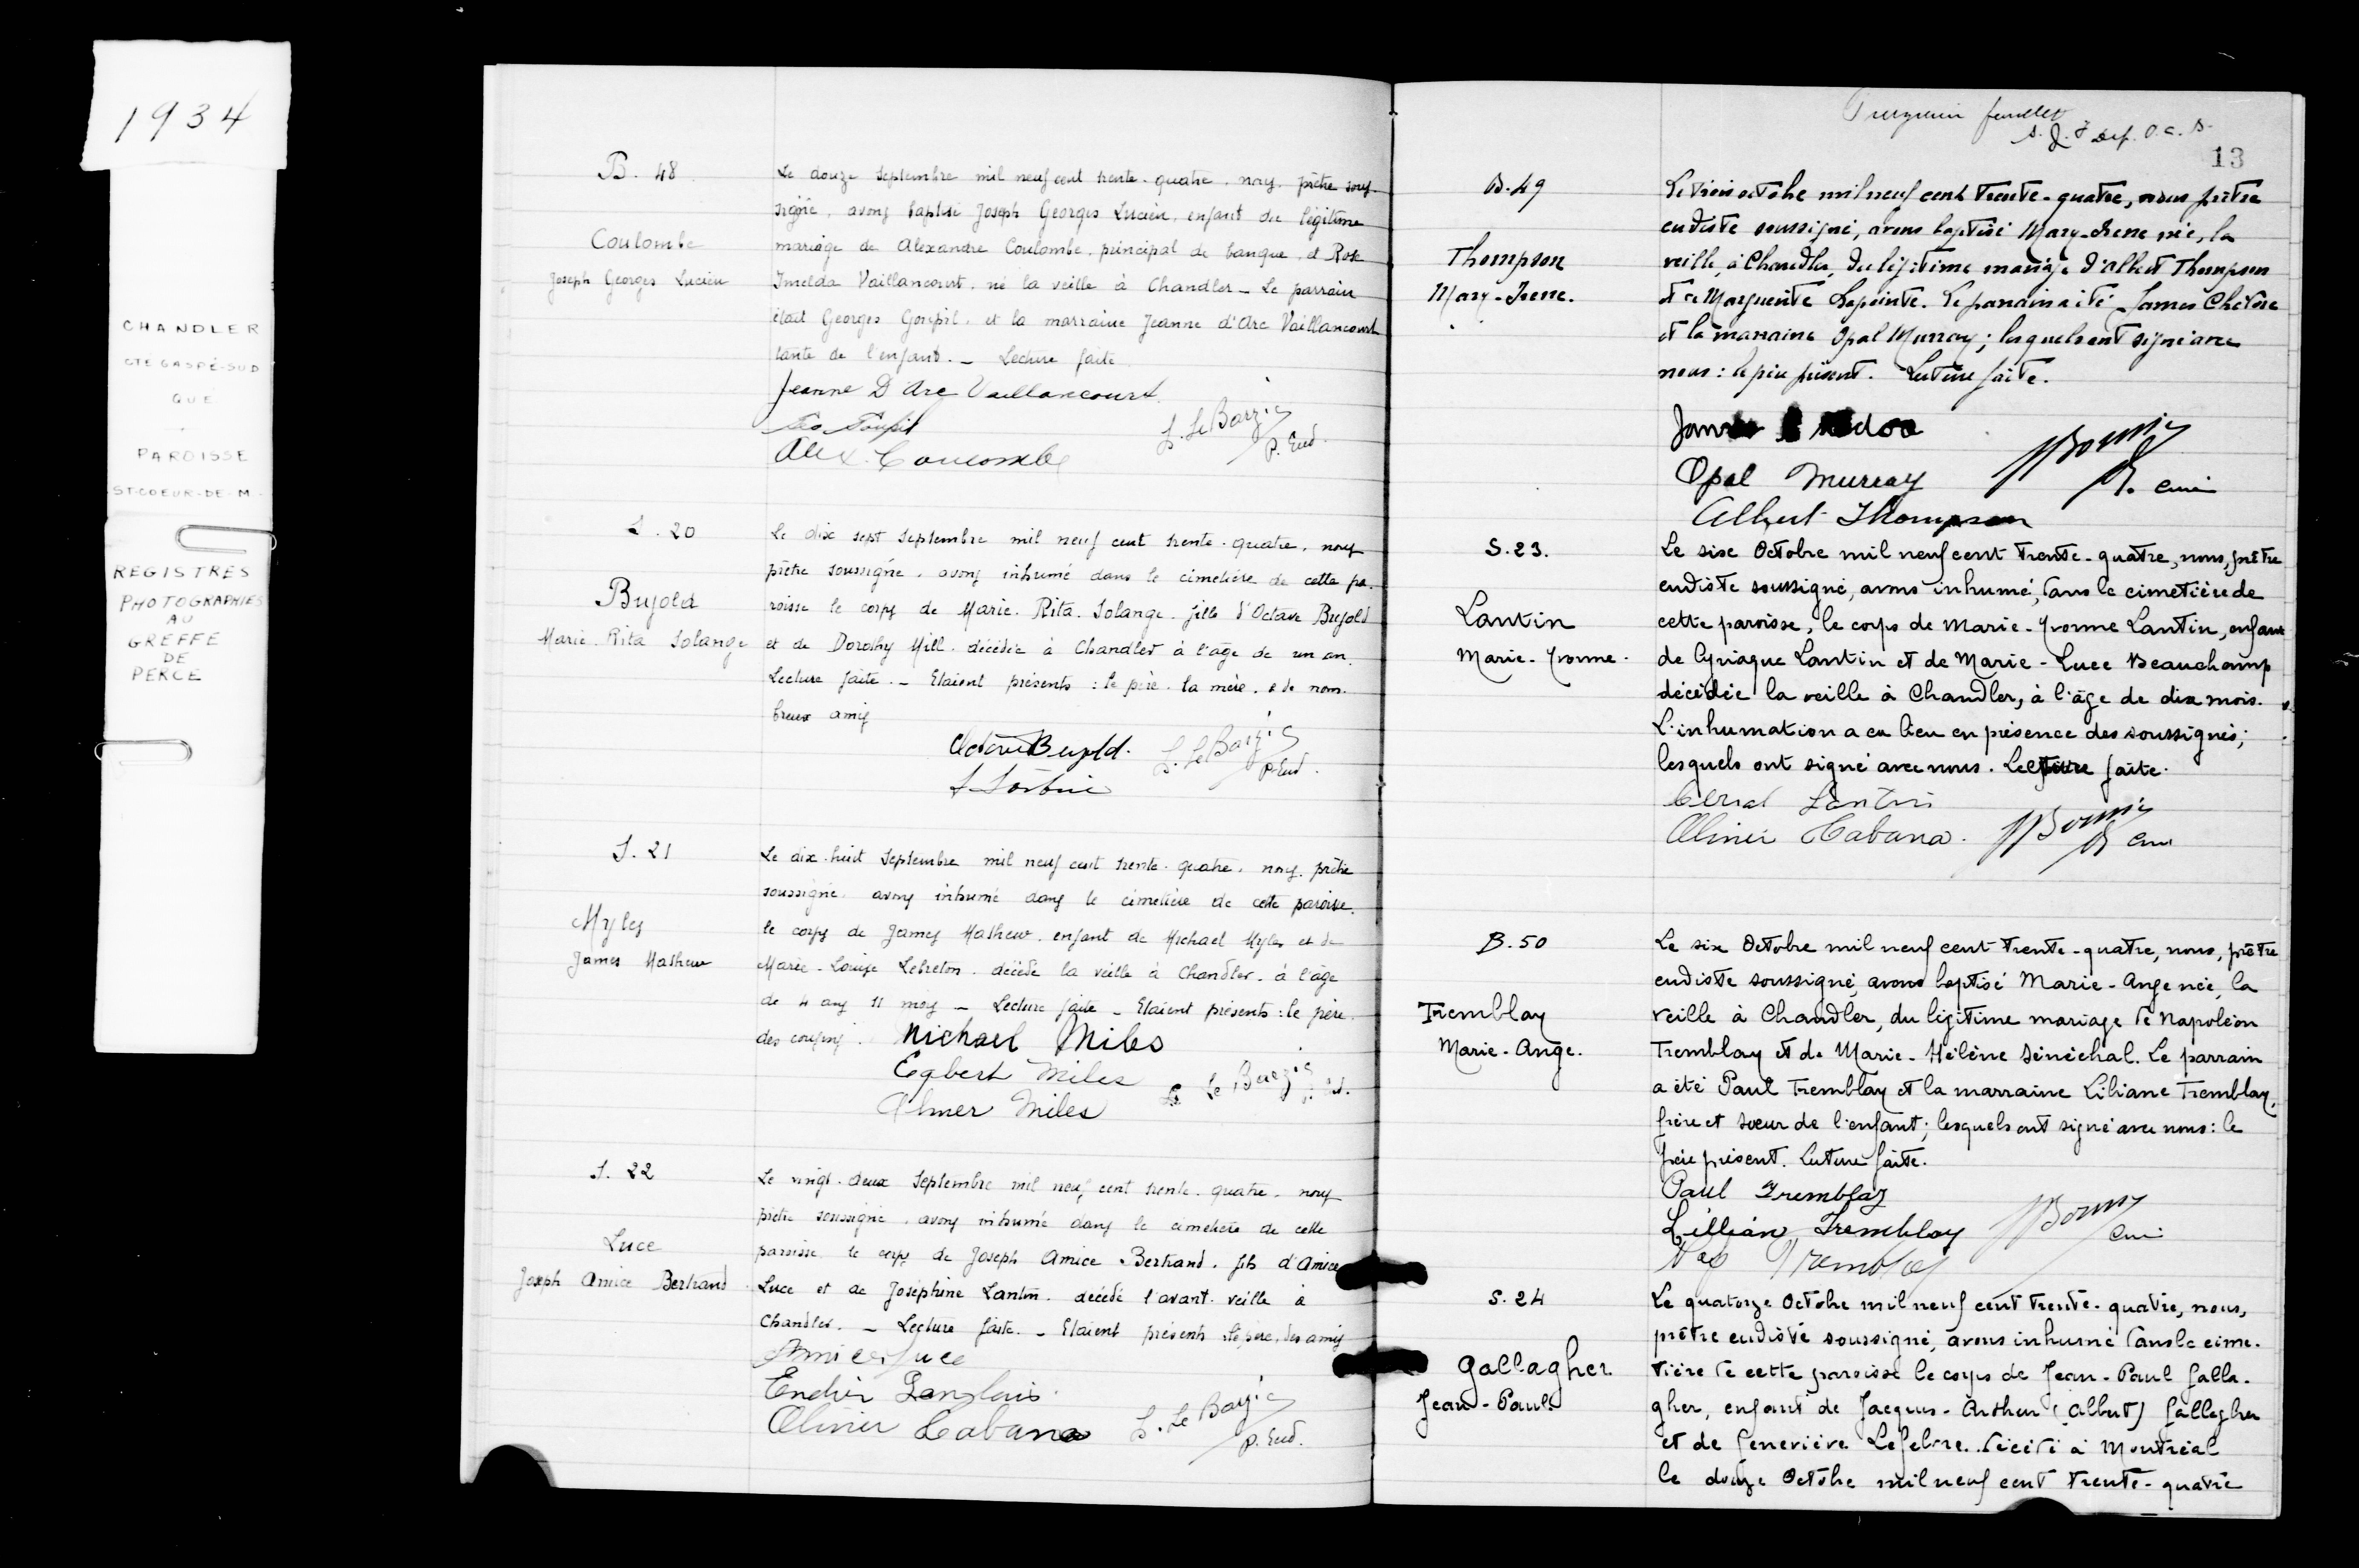 1934
CHANDLER
CTE GASPÉ-SUD
QUE
PAROISSE
ST-COEUR-DE-M.
REGISTRES
PHOTOGRAPHIES
AU
GREFFE
DE
PERCE
B. 48
Coulombe
Joseph Georges Lucien
Le douze septembre mil neuf cent trente-quatre, nous, prêtre sous-
signé, avons baptisé Joseph Georges Lucien, enfant du légitime
mariage de Alexandre Coulombe, principal de banque, et Rose
Imelda Vaillancourt, né la veille à Chandler - Le parrain
était Georges Goupil, et la marraine Jeanne d'Arc Vaillancourt
tante de l'enfant. - Lecture faite
Jeanne D'Arc Vaillancourt
Geo Goupil
Alex. Coulombe
L. Le Barzic
P. Eud.
S. 20
Bujold
Marie Rita Solange
Le dix sept septembre mil neuf cent trente-quatre, nous
prêtre soussigné, avons inhumé dans le cimetière de cette pa-
roisse le corps de Marie-Rita-Solange, fille d'Octave Bujold
et de Dorothy Mill, décédée à Chandler à l'âge de un an.
Lecture faite. - Etaient présents : le père, la mère, et de nom-
breux amis
Octave Bujold.
L. Le Barzic
P. Eud.
S. 21
Myles
James Mathew
Le dix-huit septembre mil neuf cent trente-quatre, nous, prêtre
soussigné, avons inhumé dans le cimetière de cette paroisse,
le corps de James Mathew, enfant de Michael Myles et de
Marie-Louise Lebreton, décédé la veille à Chandler, à l'âge
de 4 ans 11 mois - Lecture faite - Etaient présents : le père,
des cousins.
Michael Miles
Egbert Miles
Elmer Miles
L. Le Barzic
P. Eud.
S. 22
Luce
Joseph Amice Bertrand
Le vingt-deux septembre mil neuf cent trente-quatre, nous
prêtre soussigné, avons inhumé dans le cimetière de cette
paroisse le corps de Joseph Amice Bertrand, fils d'Amice
Luce et de Joséphine Lantin, décédé l'avant-veille à
Chandler. - Lecture faite. - Etaient présents : le père, des amis
Amice Luce
Langlais
Olivier Cabana
L. Le Barzic
P. Eud.
feuillet
13
B. 49
Thompson
Mary-Irene.
Le trois octobre mil neuf cent trente-quatre, nous prêtre
eudiste soussigné, avons baptisé Mary-Irene née, la
veille, à Chandler, du légitime mariage d'Albert Thompson
et de Marguerite Lapointe. Le parrain a été James
et la marraine Opal Murray; lesquels ont signé avec
nous: le père présent. Lecture faite.
Opal Murray
Albert Thompson
curé
S. 23.
Lantin
Marie-Yvonne.
Le six Octobre mil neuf cent trente-quatre, nous, prêtre
eudiste soussigné, avons inhumé, dans le cimetière de
cette paroisse, le corps de Marie-Yvonne Lantin, enfant
de Cyriaque Lantin et de Marie-Luce Beauchamp
décédée la veille à Chandler, à l'âge de dix mois.
L'inhumation a eu lieu en présence des soussignés;
lesquels ont signé avec nous. Lecture faite.
Lantin
Olivier Cabana.
curé
B. 50
Tremblay
Marie-Ange.
Le six Octobre mil neuf cent trente-quatre, nous, prêtre
eudiste soussigné, avons baptisé Marie-Ange née, la
veille à Chandler, du légitime mariage de Napoléon
Tremblay et de Marie-Hélène Sénéchal. Le parrain
a été Paul Tremblay et la marraine Liliane Tremblay,
frère et soeur de l'enfant; lesquels ont signé avec nous: le
père présent. Lecture faite.
Paul Tremblay
Lillian Tremblay
Nap Tremblay
curé
S. 24
Gallagher
Jean-Paul.
Le quatorze Octobre mil neuf cent trente-quatre, nous,
prêtre eudiste soussigné, avons inhumé dans le cime-
tière de cette paroisse le corps de Jean-Paul Galla-
gher, enfant de Jacques-Arthur (Albert) Gallagher
et de Geneviève Lefebvre. décédé à Montréal
le douze Octobre mil neuf cent trente-quatre